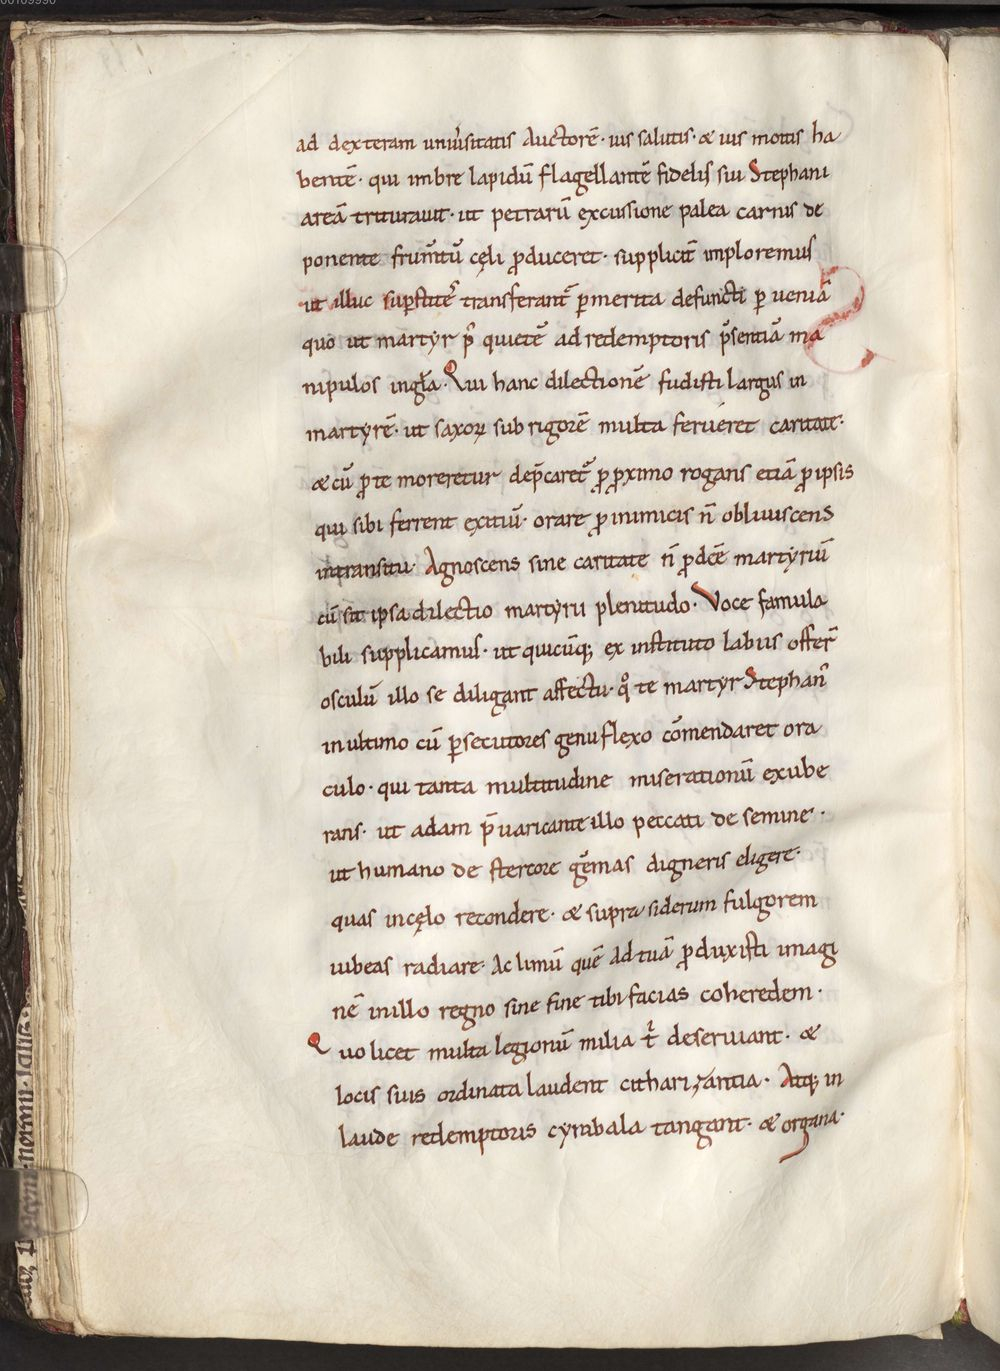 00109990
ad dexteram univ̄sitatis Auctorē· uis salutis· & uis mortis ha
bentē· qui imbre lapidū flagellantē fidelis sui Stephani
areā triturauit· ut petrarū excussione palea carnis de
ponente frum̄tū cęli ꝓduceret· supplicit̄ imploremus
ut illuc sup̄stites transferant̄ ꝑ merita defuncti ꝑ ueniā
quo ut martyr p̄ quietē ad redemptoris p̄sentiā ma
nipulos in gl̄a· Qui hanc dilectionē fudisti largus in
martyrē· ut saxoꝝ sub rigorē multa ferueret caritate·
& cū ꝓ te moreretur dep̄caret̄ ꝓ ꝓximo rogans etiā ꝓ ipsis
qui sibi ferrent exitiū· orare ꝓ inimicis n̄ obliuiscens
in transitu· Agnoscens sine caritate n̄ ꝓdēē martyriū
cū sit ipsa dilectio martyrii plenitudo· Voce famula
bili supplicamus· ut quicūq; ex instituto labiis offer̄
osculū illo se diligant affectu· qͦ te martyr Stephan᷒
in ultimo cū ꝑsecutores genu flexo cōmendaret ora
culo· qui tanta multitudine miserationū exube
rans· ut adam p̄uaricante illo peccati de semine·
ut humano de stercore gēmas digneris eligere·
quas in cęlo recondere· & supra siderum fulgorem
iubeas radiare· Ac limū quē Ad tuā ꝓduxisti imagi
nē in illo regno sine fine tibi facias coheredem·
Quo licet multa legionū milia t̄ deseruiant· &
locis suis ordinata laudent citharizantia· Atq; in
laude redemptoris cymbala tangant· & organa·